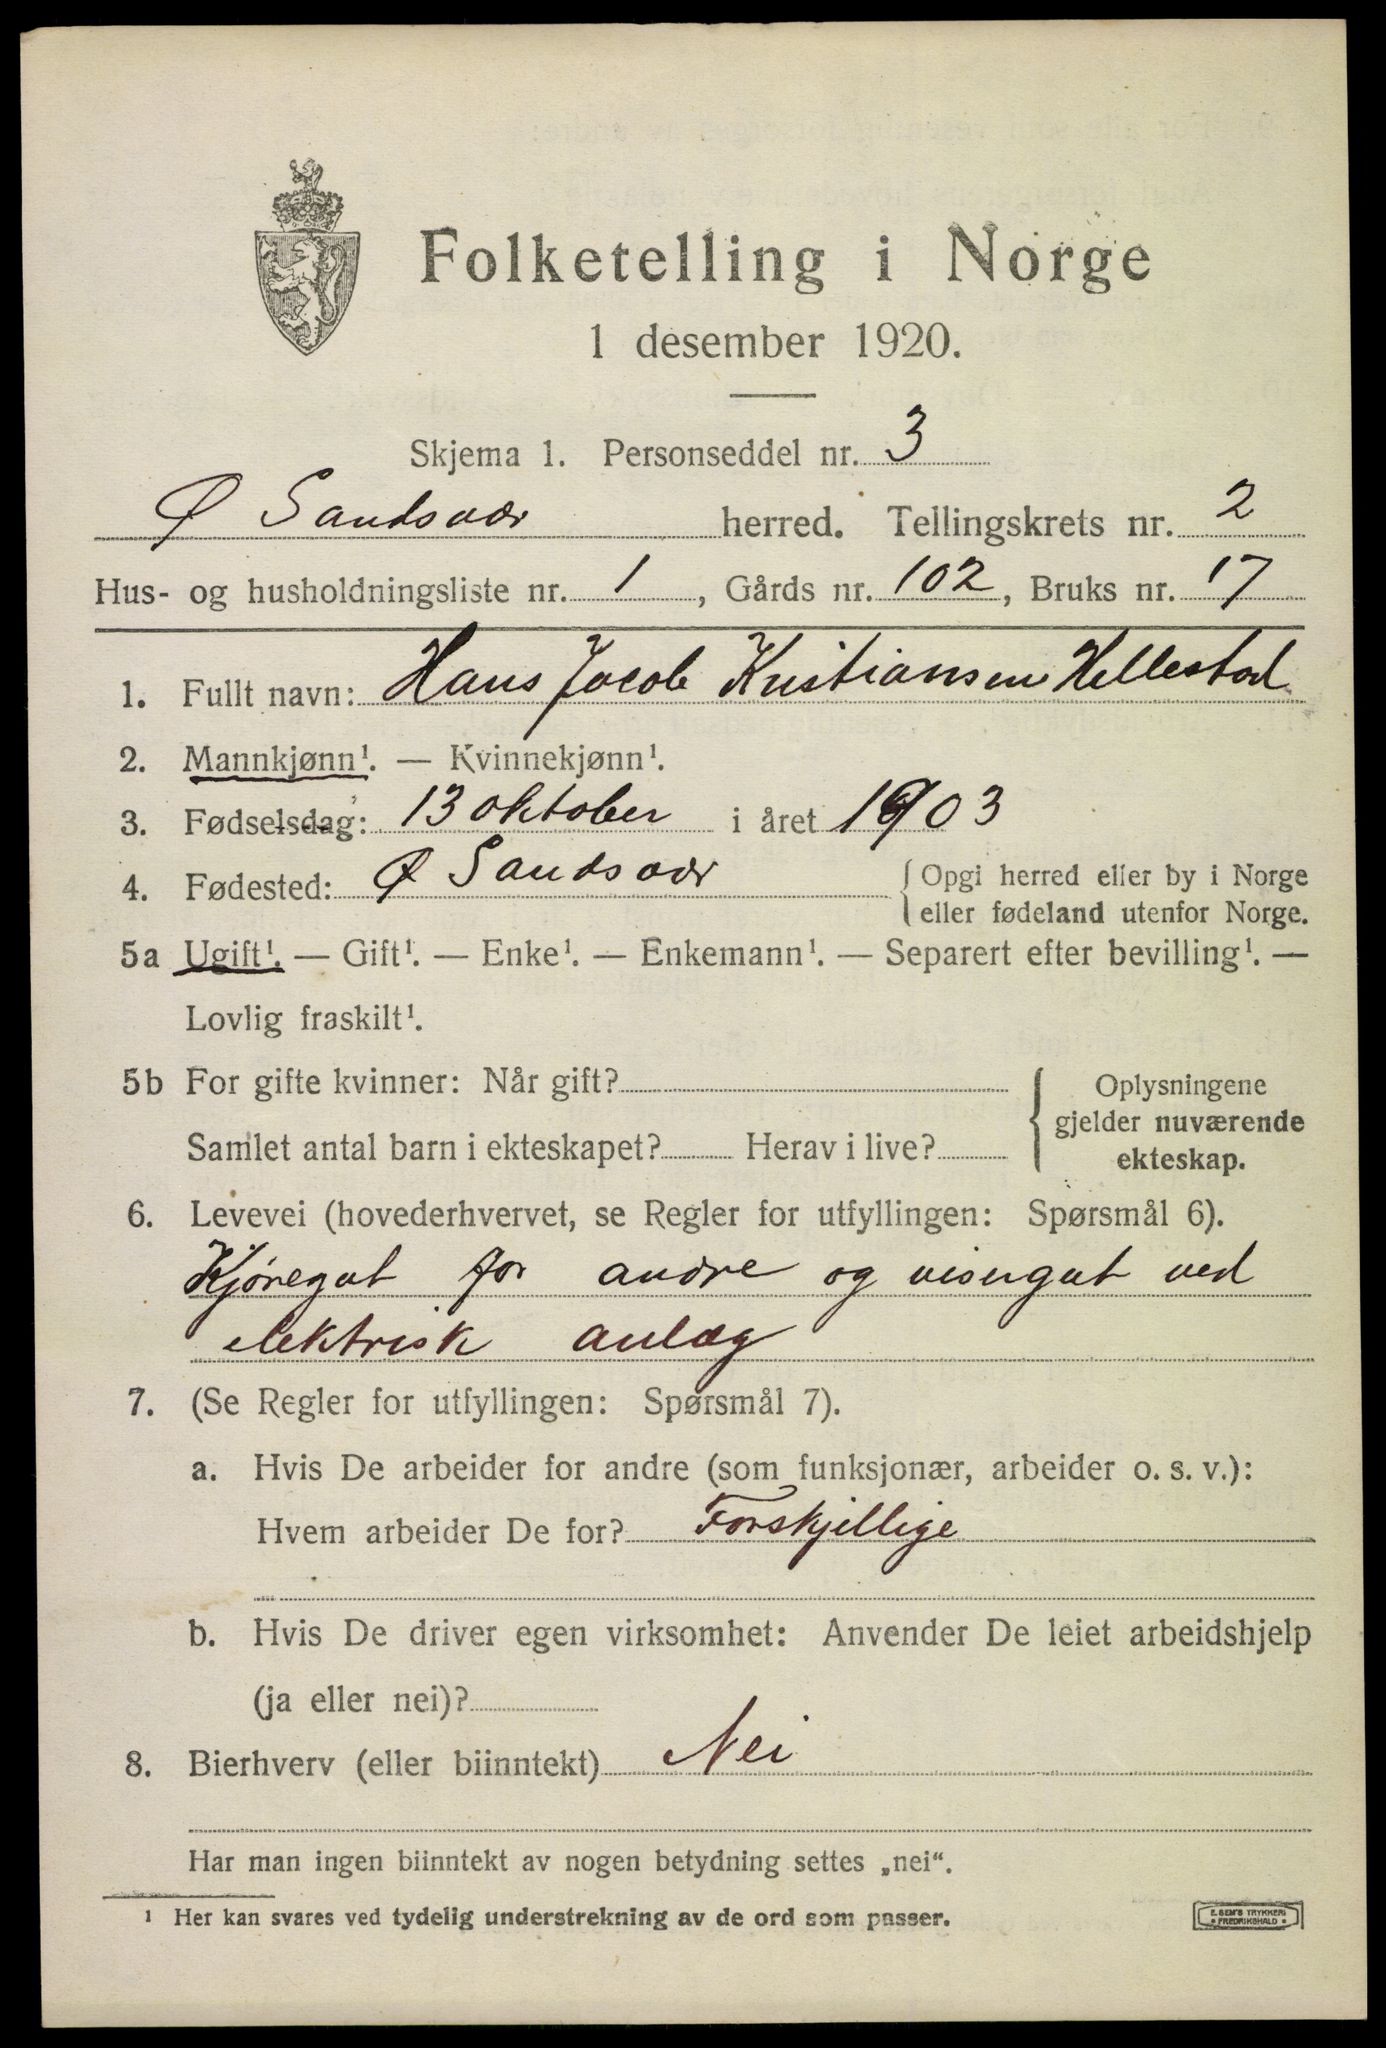 Folketelling i Norge
1 desember 1920.
Skjema 1. Personseddel nr. 3
Ø Sandsvær herred. Tellingskrets nr. 2
Hus- og husholdningsliste nr. 1, Gårds nr. 102, Bruks nr. 17
1. Fullt navn: Hans Jacob Kristiansen Hellestad
2. Mannkjønn¹. — Kvinnekjønn¹.
3. Fødselsdag: 13 oktober i året 1903
4. Fødested: Ø Sandsvær { Opgi herred eller by i Norge
eller fødeland utenfor Norge.
5a Ugift¹. — Gift¹. — Enke¹. — Enkemann¹. — Separert efter bevilling¹. —
Lovlig fraskilt¹.
5b For gifte kvinner: Når gift?
Samlet antal barn i ekteskapet? Herav i live?
{ Oplysningene
gjelder nuværende
ekteskap.
6. Levevei (hovederhvervet, se Regler for utfyllingen: Spørsmål 6).
Kjøregut for andre og visergut ved
elektrisk anlæg
7. (Se Regler for utfyllingen: Spørsmål 7).
a. Hvis De arbeider for andre (som funksjonær, arbeider o. s. v.):
Hvem arbeider De for? Forskjellige
b. Hvis De driver egen virksomhet: Anvender De leiet arbeidshjelp
(ja eller nei)?
8. Bierhverv (eller biinntekt) Nei
Har man ingen biinntekt av nogen betydning settes „nei“.
¹ Her kan svares ved tydelig understrekning av de ord som passer.
E. SEM'S TRYKKERI
• FREDRIKSHALD •